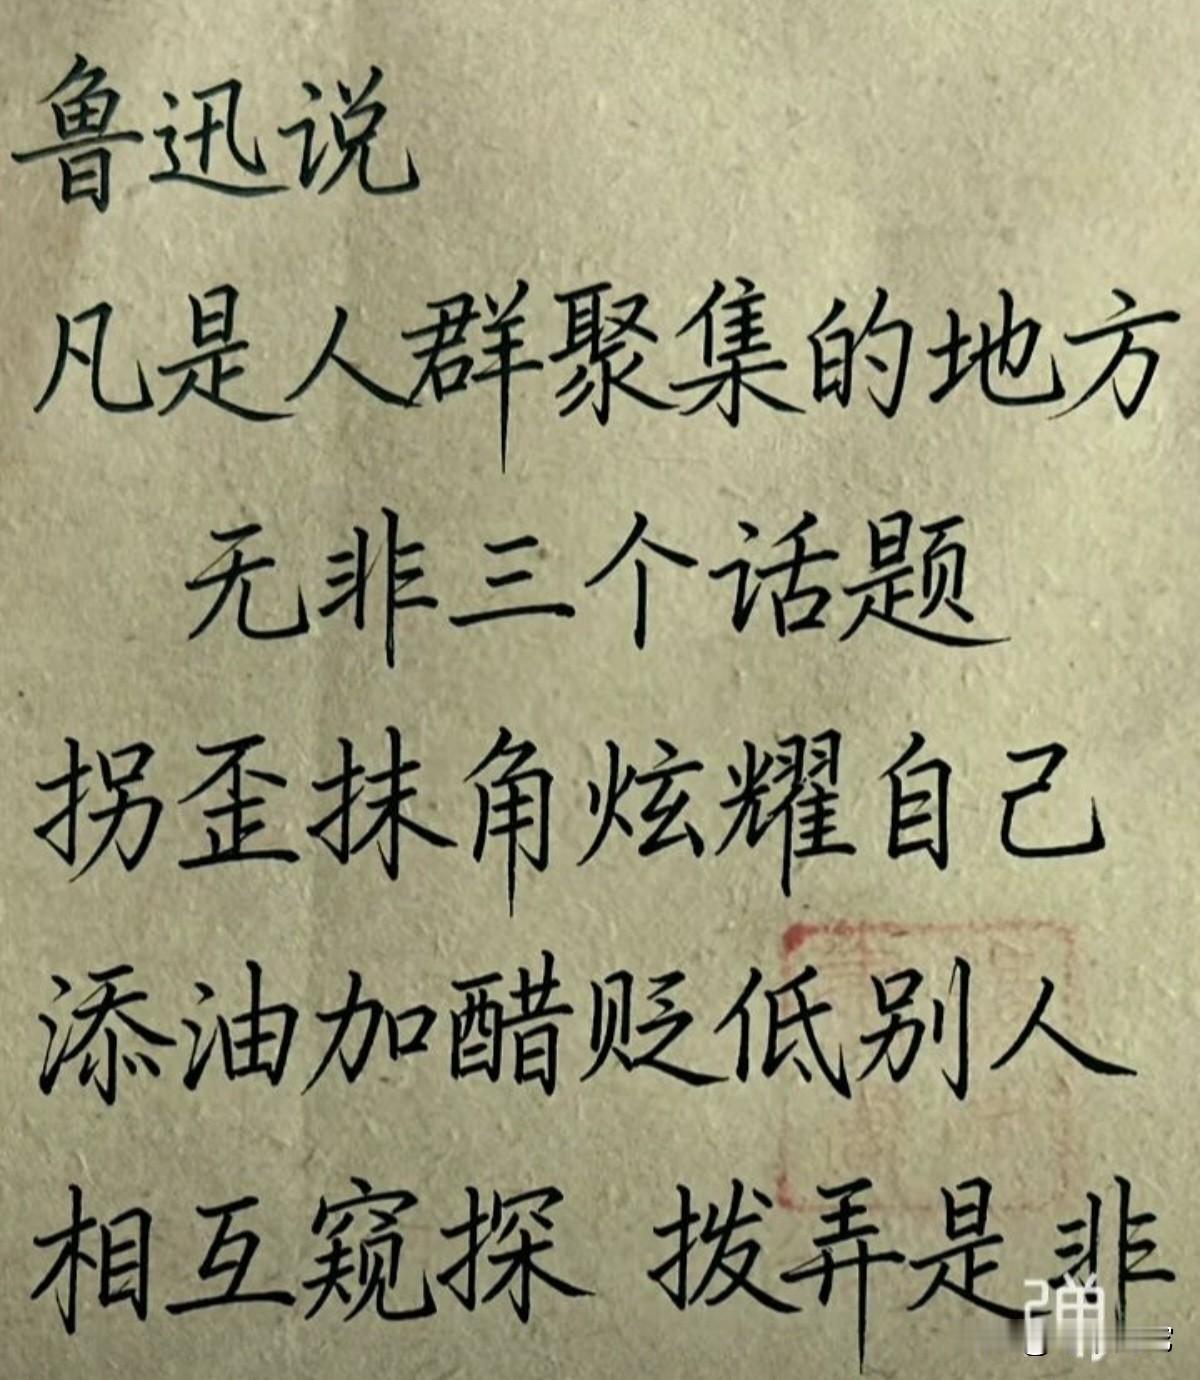 鲁迅说
凡是人群聚集的地方
无非三个话题
拐歪抹角炫耀自己
添油加醋贬低别人
相互窥探 拨弄是非